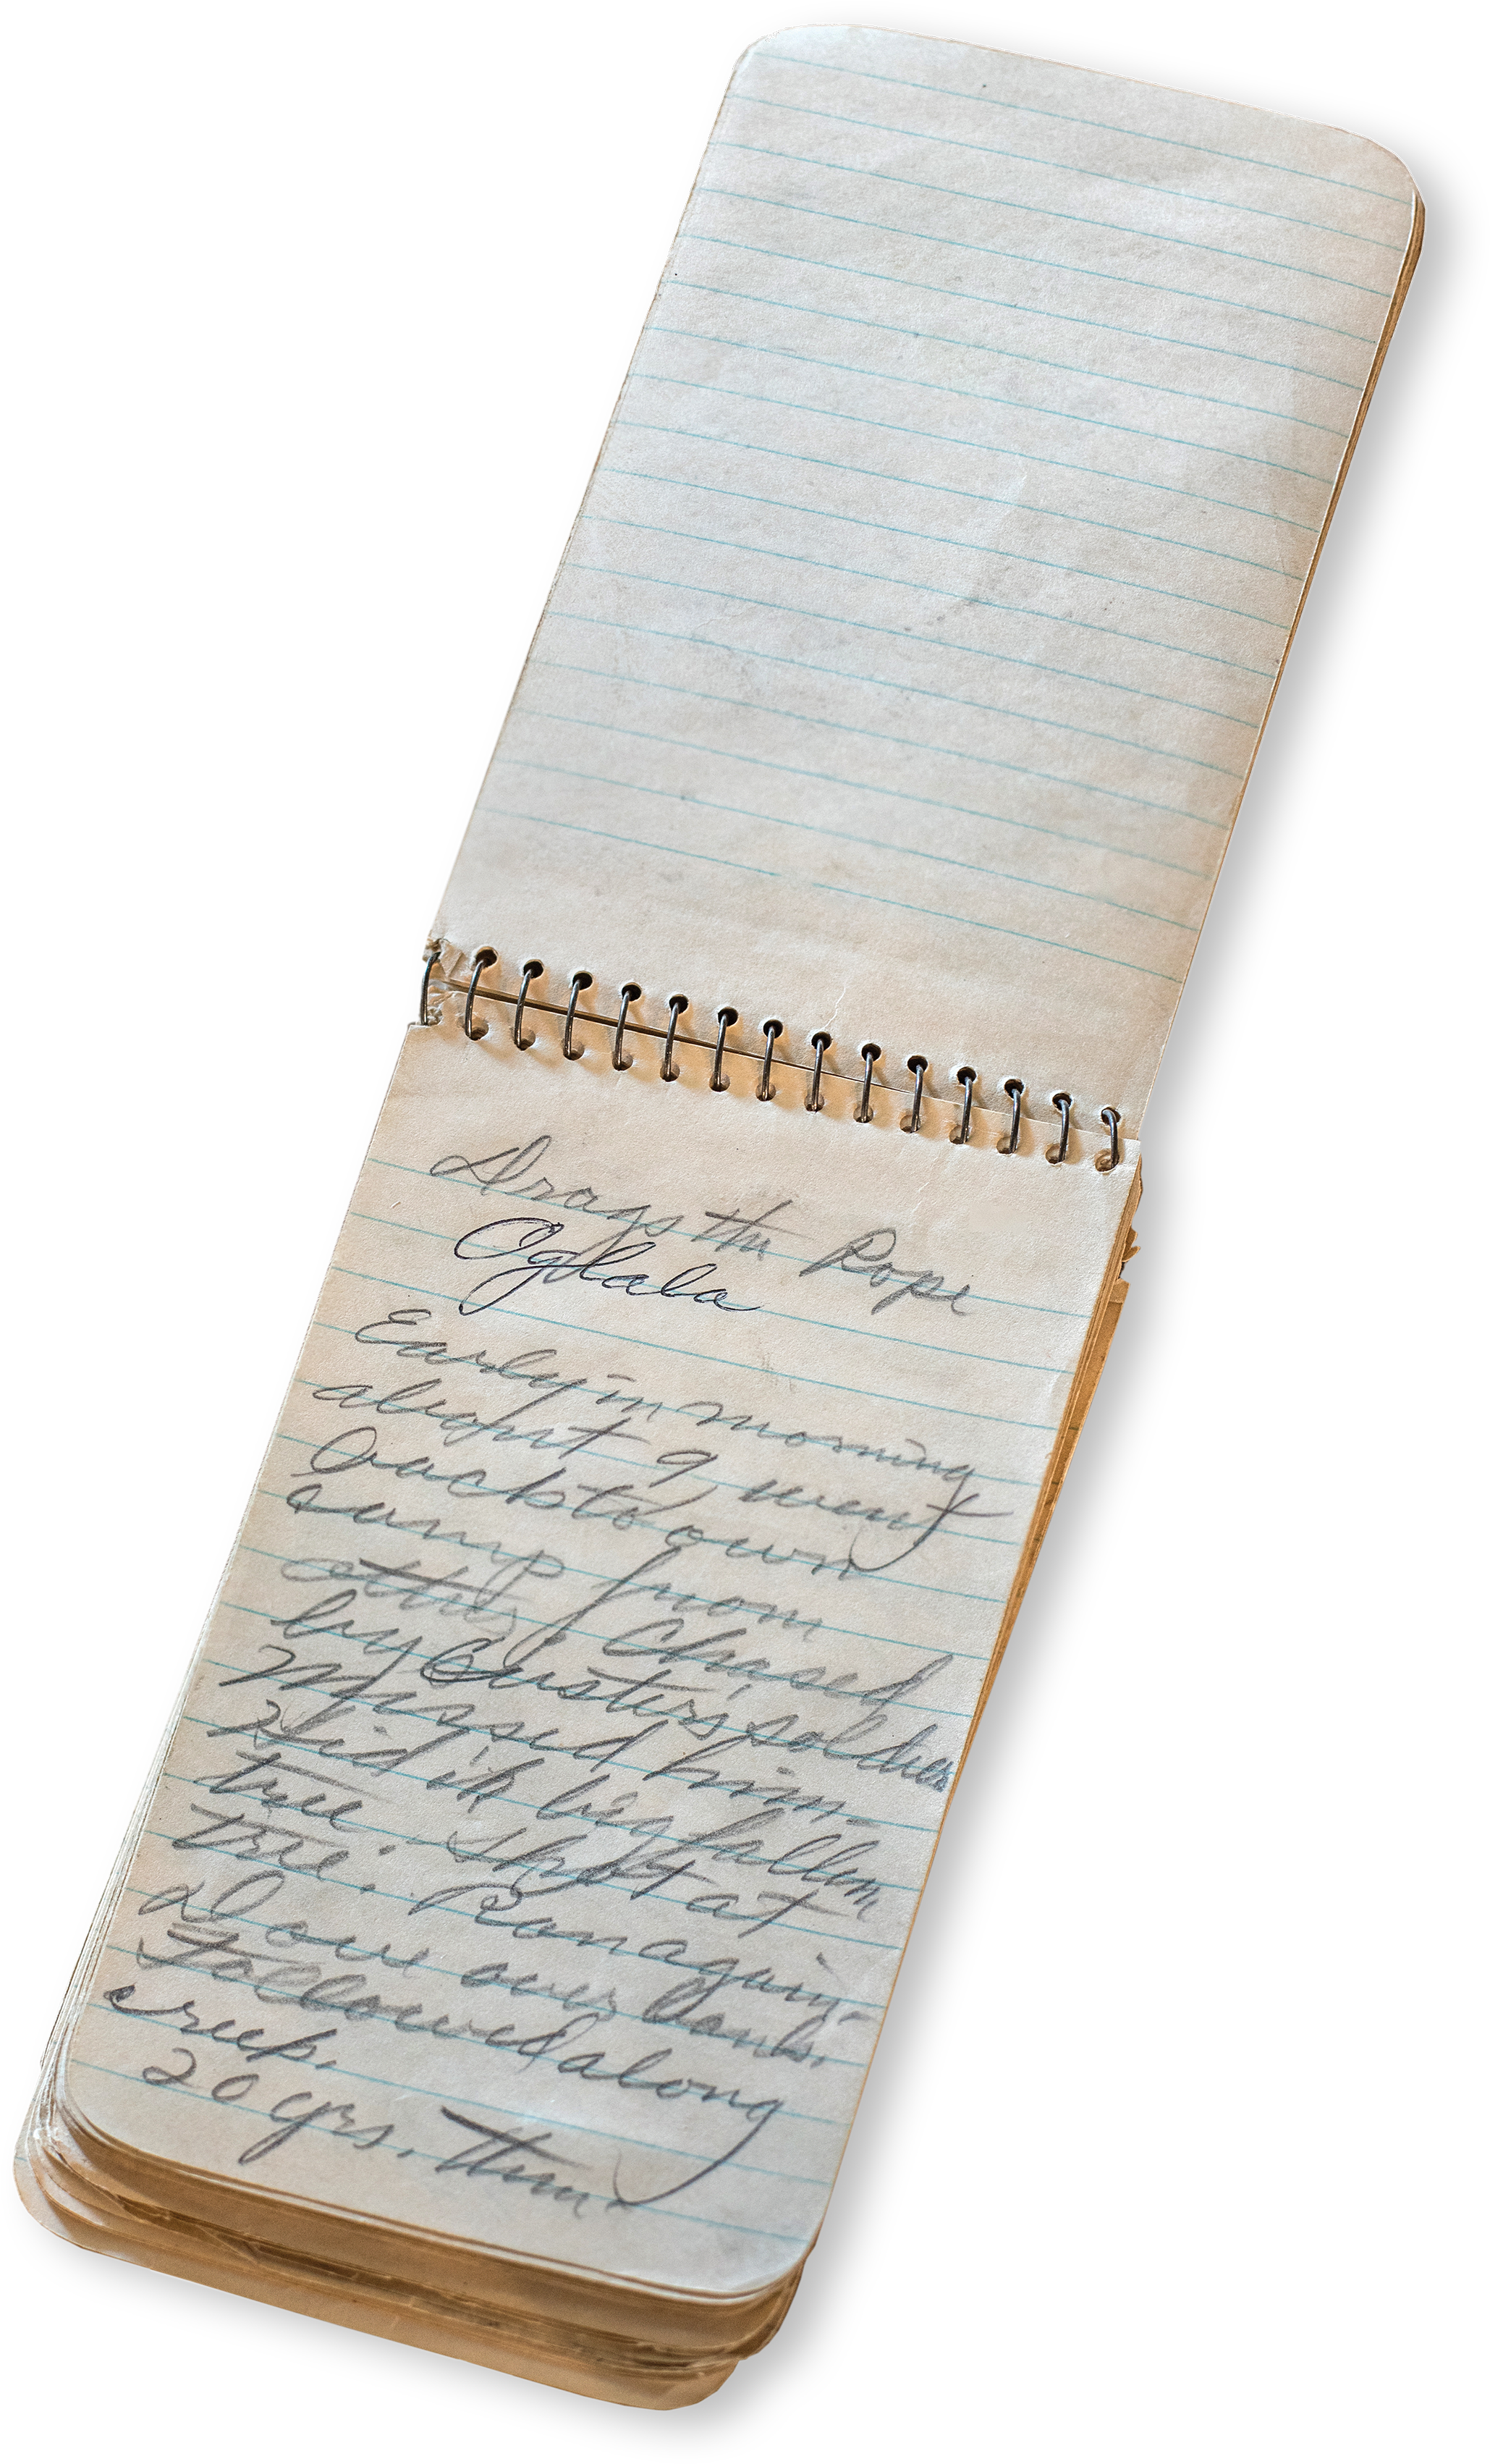 Drags the Rope
Oglala
Early in morning
about 9 went
back to own
camp from
others. Chased
by Custer's soldiers
Missed him.
Hid in big fallen
tree. Shot at
tree. Ran again.
Dove over bank.
Followed along
creek.
20 yrs. then